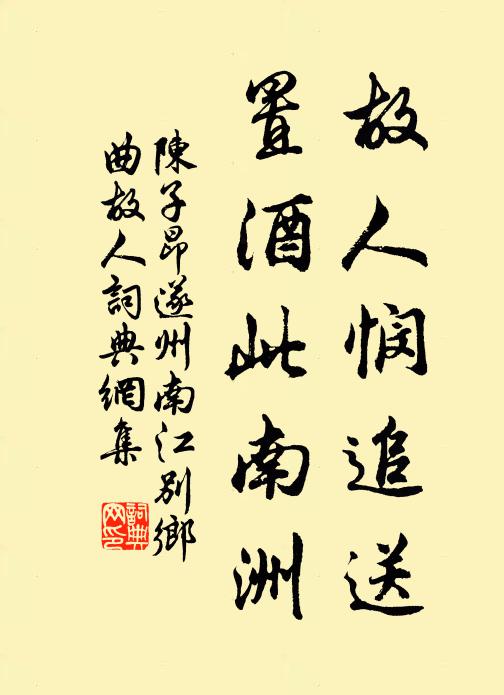 故人悯追送
置酒此南洲
陳子昂遂州南江别鄉
曲故人詞典網集
詞典
网印